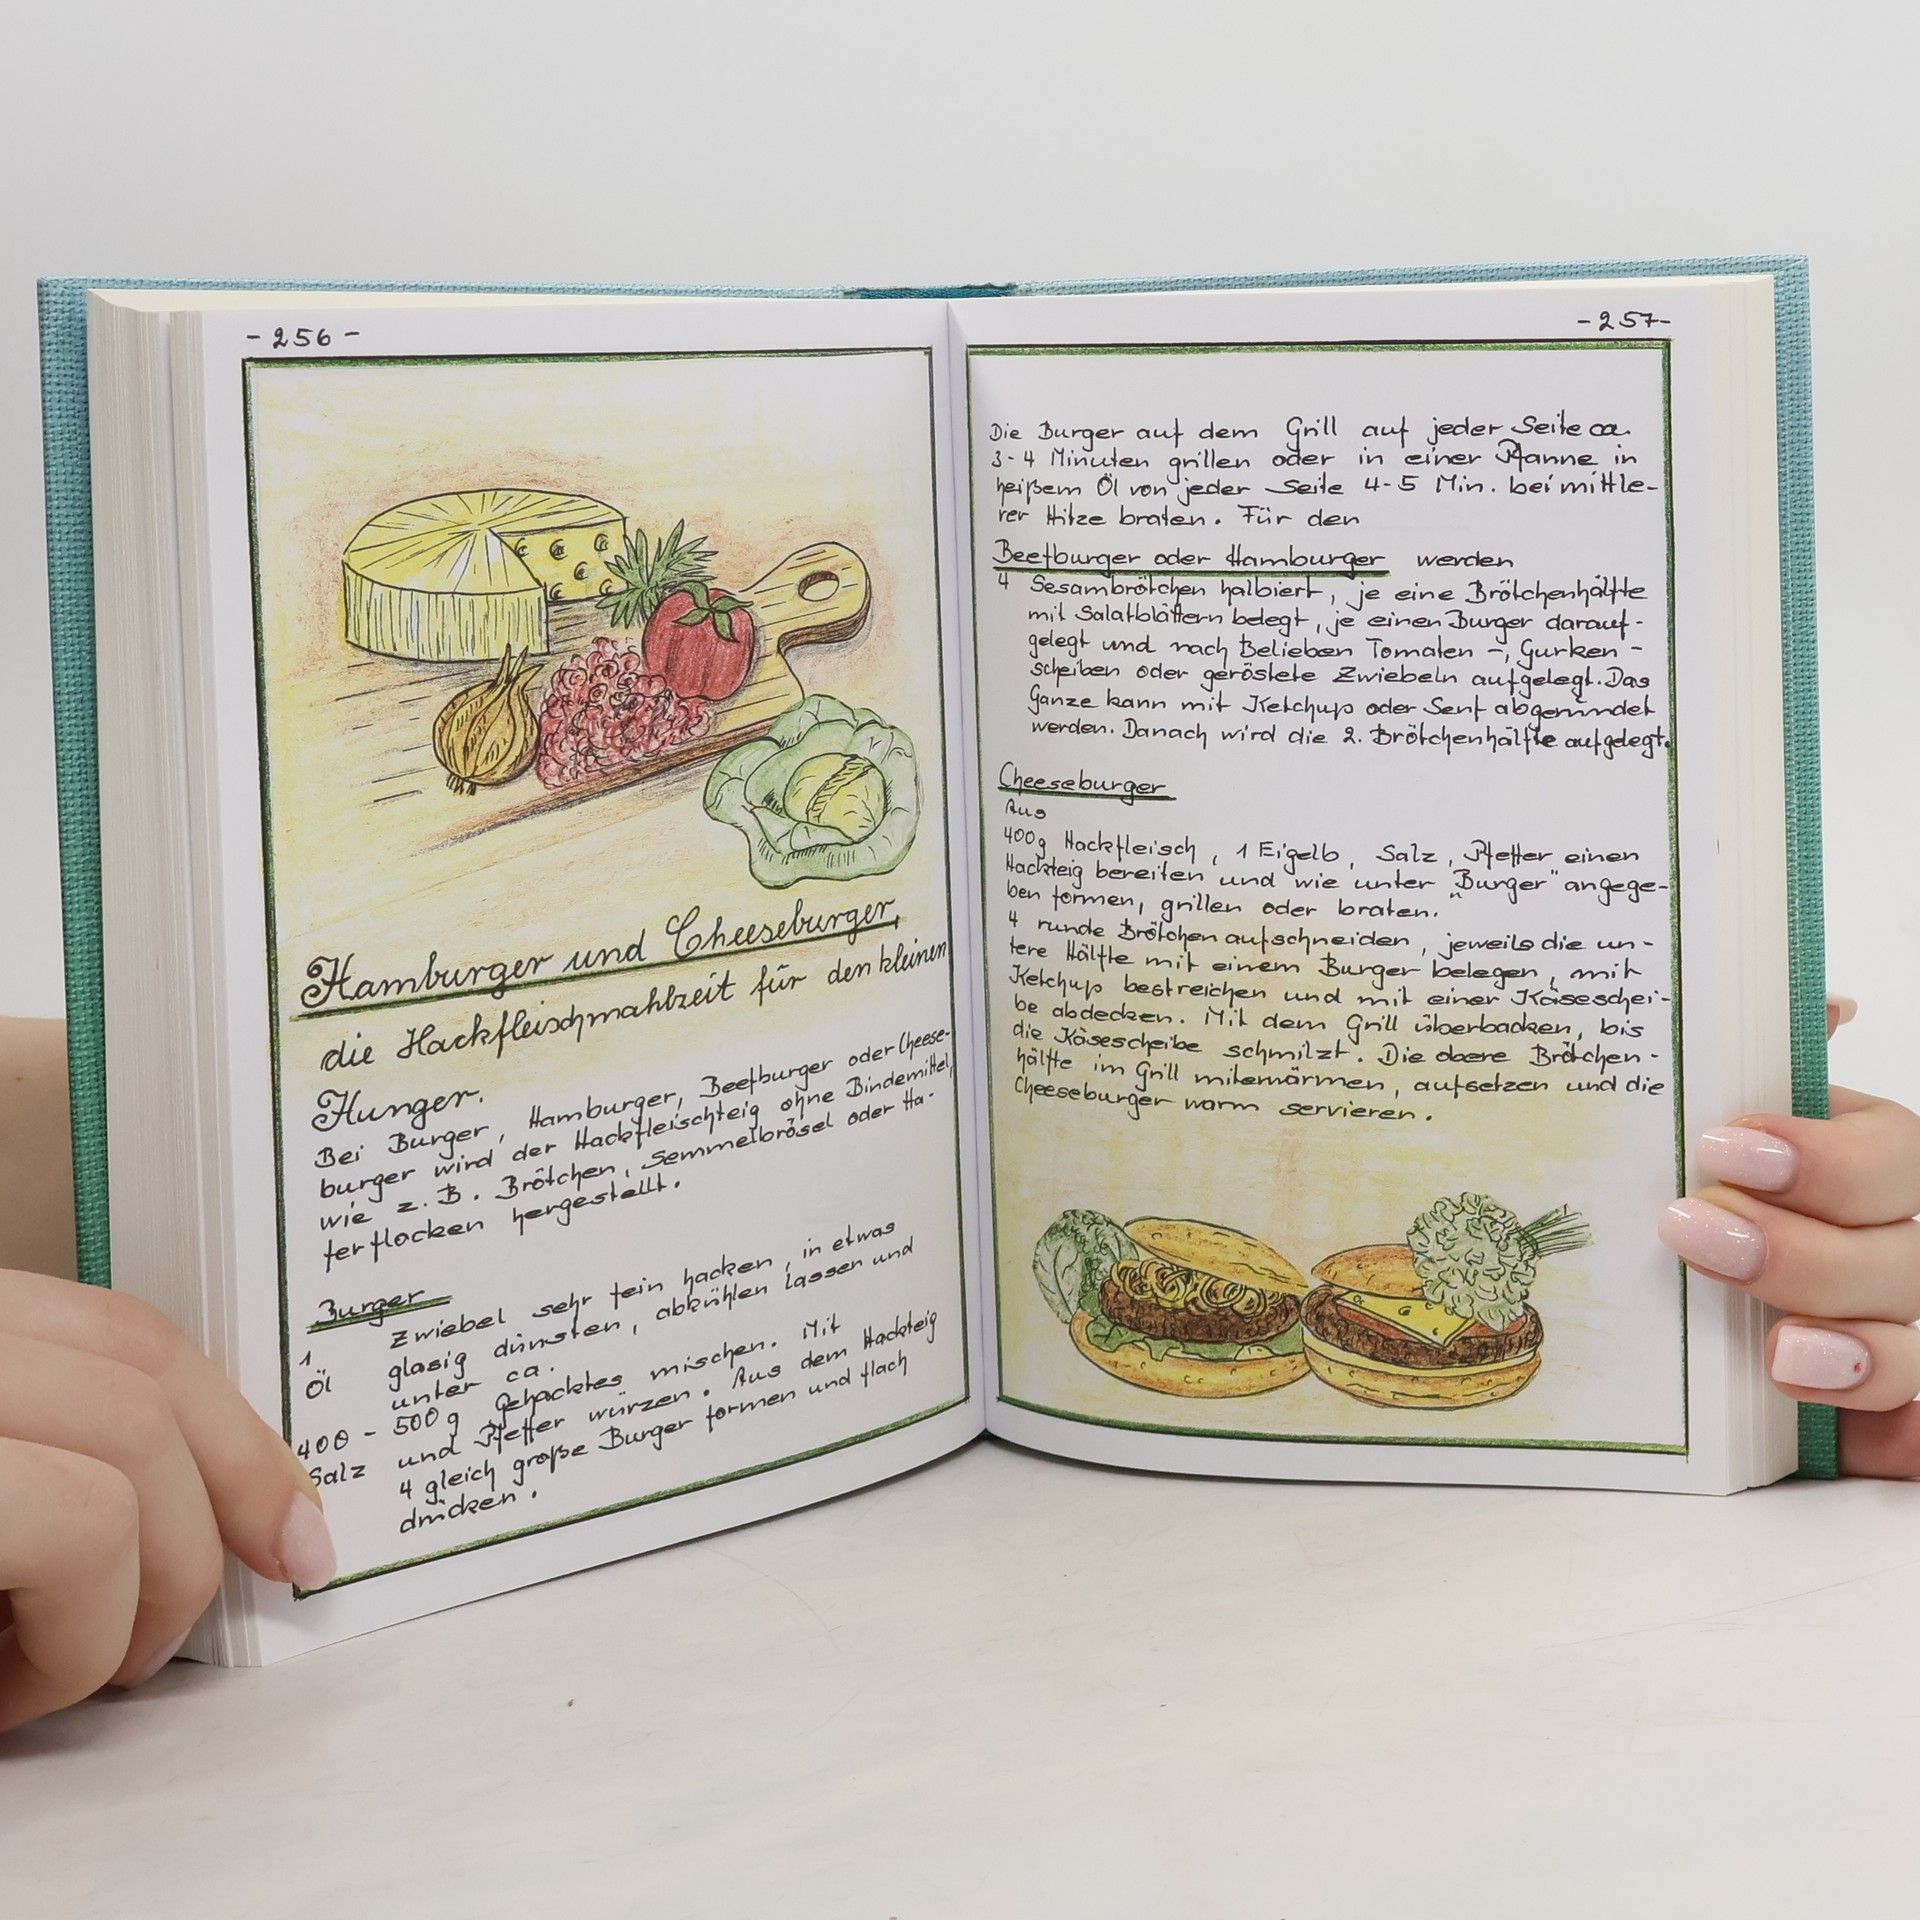 - 256 -
Hamburger und Cheeseburger,
die Hackfleischmahlzeit für den kleinen
Hunger.
Bei Burger, Hamburger, Beefburger oder Cheese-
burger wird der Hackfleischteig ohne Bindemittel,
wie z. B. Brötchen, Semmelbrösel oder Ha-
ferflocken hergestellt.
Burger
1 Zwiebel sehr fein hacken, in etwas
Öl glasig dünsten, abkühlen lassen und
unter ca.
400 - 500 g Gehacktes mischen. Mit
Salz und Pfeffer würzen. Aus dem Hackteig
4 gleich große Burger formen und flach
drücken.
- 257 -
Die Burger auf dem Grill auf jeder Seite ca.
3-4 Minuten grillen oder in einer Pfanne in
heißem Öl von jeder Seite 4-5 Min. bei mittle-
rer Hitze braten. Für den
Beefburger oder Hamburger werden
4 Sesambrötchen halbiert, je eine Brötchenhälfte
mit Salatblättern belegt, je einen Burger darauf-
gelegt und nach Belieben Tomaten-, Gurken-
scheiben oder geröstete Zwiebeln aufgelegt. Das
Ganze kann mit Ketchup oder Senf abgerundet
werden. Danach wird die 2. Brötchenhälfte aufgelegt.
Cheeseburger
Aus
400g Hackfleisch, 1 Eigelb, Salz, Pfeffer einen
Hackteig bereiten und wie unter "Burger" angege-
ben formen, grillen oder braten.
4 runde Brötchen aufschneiden, jeweils die un-
tere Hälfte mit einem Burger belegen, mit
Ketchup bestreichen und mit einer Käseschei-
be abdecken. Mit dem Grill überbacken, bis
die Käsescheibe schmilzt. Die obere Brötchen-
hälfte im Grill miterwärmen, aufsetzen und die
Cheeseburger warm servieren.